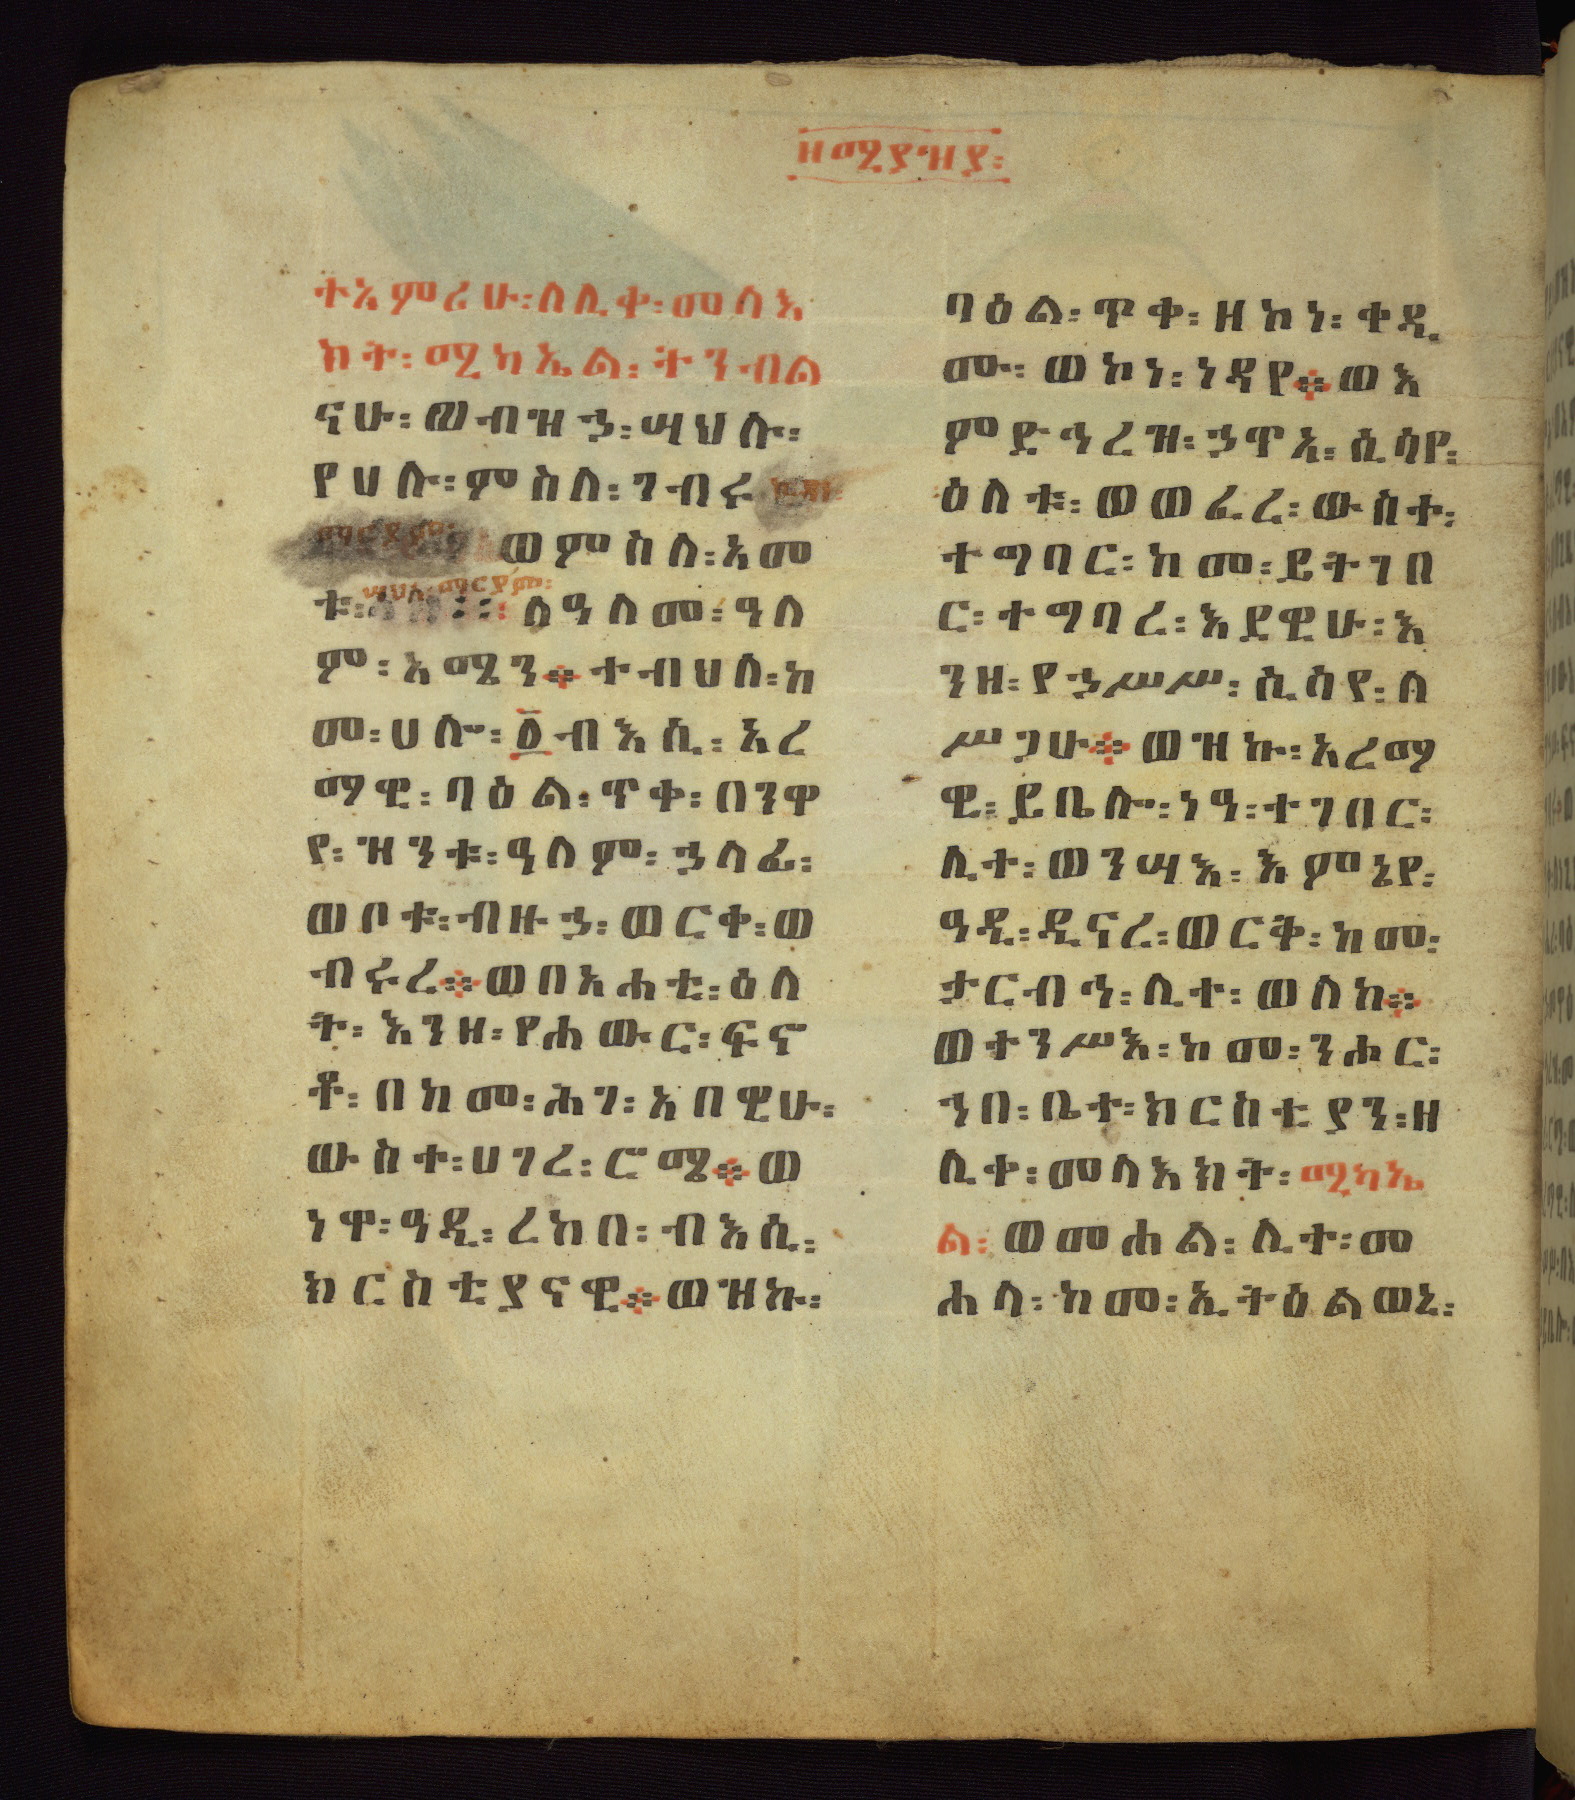 ዘሚያዝያ፡
ተአምሪሁ፡ ለሊቀ፡ መላእ
ክት፡ ሚካኤል፡ ትንብል
ናሁ፡ ወብዝኃ፡ ሣህሉ፡
የሀሉ፡ ምስለ፡ ገብሩ
ወምስለ፡ አመ
ቱ፡ ሣህለ፡ ማርያም፡ ለዓለመ፡ ዓለ
ም፡ አሜን። ተብህለ፡ ከ
መ፡ ሀሎ፡ ፩ ብእሲ፡ አረ
ማዊ፡ ባዕል፡ ጥቀ፡ በንዋ
የ፡ ዝንቱ፡ ዓለም፡ ኃላፊ፡
ወቦቱ፡ ብዙኃ፡ ወርቀ፡ ወ
ብሩረ። ወበአሐቲ፡ ዕለ
ት፡ እንዘ፡ የሐውር፡ ፍኖ
ቶ፡ በከመ፡ ሕገ፡ አበዊሁ፡
ውስተ፡ ሀገረ፡ ሮሜ። ወ
ነዋ፡ ዓዲ፡ ረከበ፡ ብእሲ፡
ክርስቲያናዊ። ወዝኩ፡
ባዕል፡ ጥቀ፡ ዘኮነ፡ ቀዲ
ሙ፡ ወኮነ፡ ነዳየ። ወእ
ምድኅረዝ፡ ኃጥአ፡ ሲሳየ፡
ዕለቱ፡ ወወፈረ፡ ውስተ፡
ተግባር፡ ከመ፡ ይትገበ
ር፡ ተግባረ፡ እደዊሁ፡ እ
ንዘ፡ የኃሥሥ፡ ሲሳየ፡ ለ
ሥጋሁ። ወዝኩ፡ አረማ
ዊ፡ ይቤሎ፡ ነዓ፡ ተገበር፡
ሊተ፡ ወንሣእ፡ እምኔየ፡
ዓዲ፡ ዲናረ፡ ወርቅ፡ ከመ፡
ታርብኅ፡ ሊተ፡ ወለከ።
ወተንሥእ፡ ከመ፡ ንሑር፡
ኀበ፡ ቤተ፡ ክርስቲያን፡ ዘ
ሊቀ፡ መላእክት፡ ሚካኤ
ል፡ ወመሐል፡ ሊተ፡ መ
ሐላ፡ ከመ፡ ኢትዕልወኒ፡